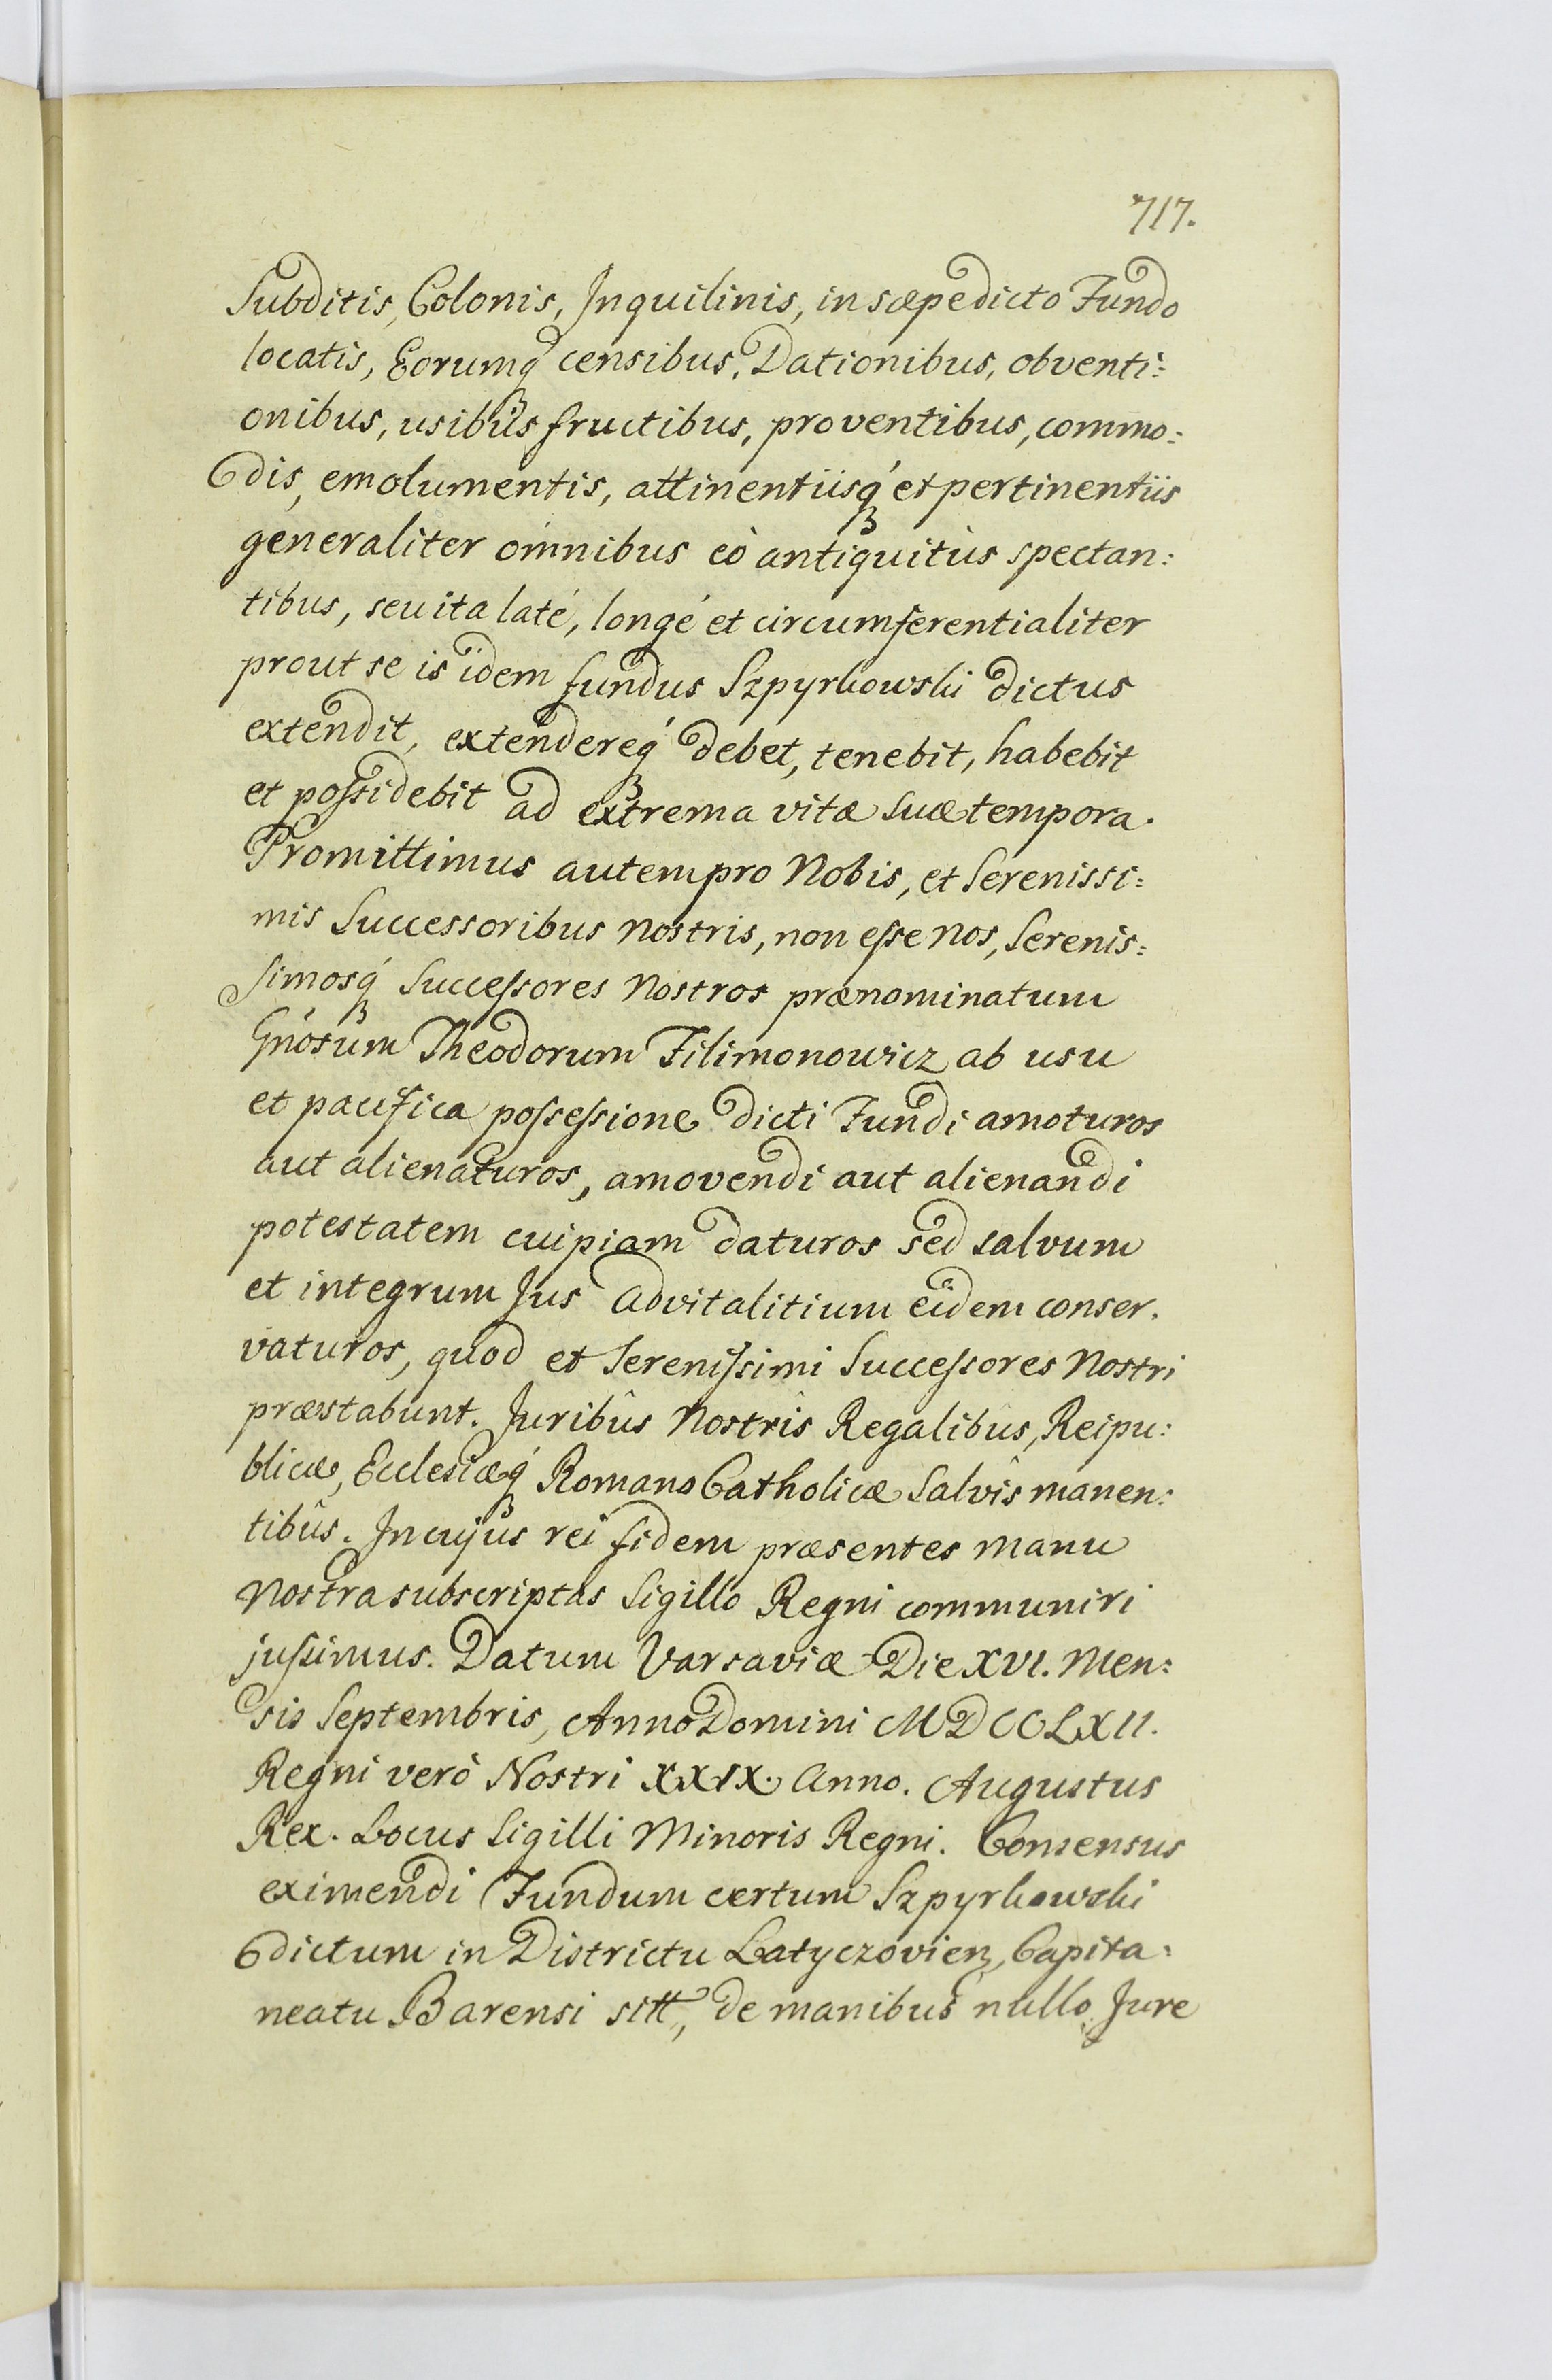 717.
Subditis, Colonis, Inquilinis, in sæpe dicto Fundo
locatis, Eorumq́ue censibus, Dationibus, obventi:
onibus, usibus fructibus, proventibus, commo:
dis, emolumentis, attinentiisq́ue et pertinentiis
generaliter omnibus eò antiquitùs spectan:
tibus, seu ita laté, longé et circumferentialiter
prout se is idem fundus Szpyrkowski dictus
extendit, extendereq́ue debet, tenebit, habebit
et poſsidebit ad extrema vitæ suæ tempora.
Promittimus autem pro Nobis, et Serenissi:
mis Successoribus Nostris, non eſse Nos, Serenis:
simosq́ue Succeſsores Nostros prænominatum
Gnosum Theodorum Filimonowicz ab usu
et pacifica poſseſsione dicti Fundi amoturos
aut alienaturos, amovendi aut alienandi
potestatem cuipiam daturos sed salvum
et integrum Jus Advitalitium eidem conser.
vaturos, quod et Sereniſsimi Succeſsores Nostri
præstabunt. Juribûs Nostrîs Regalibûs, Reipu:
blicæ, Ecclesiæq́ue Romano Catholicæ Salvîs manen:
tibûs. In cujus rei fidem præsentes Manu
Nostra subscriptas Sigillo Regni communiri
juſsimus. Datum Varsaviæ Die XVI. Men:
sis Septembris, Anno Domini MDCCLXII.
Regni verò Nostri XXIX. Anno. Augustus
Rex. Locus Sigilli Minoris Regni. Consensus
eximendi Fundum certum Szpyrkowski
dictum in Districtu Latyczovien, Capita:
neatu Barensi sitt, de manibus nullo Jure